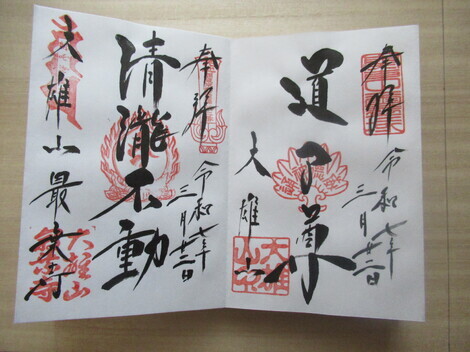 奉拝
令和七年
三月廿二日
道了尊
大雄山
奉拝
令和七年
三月廿二日
清瀧不動
大雄山最乗寺